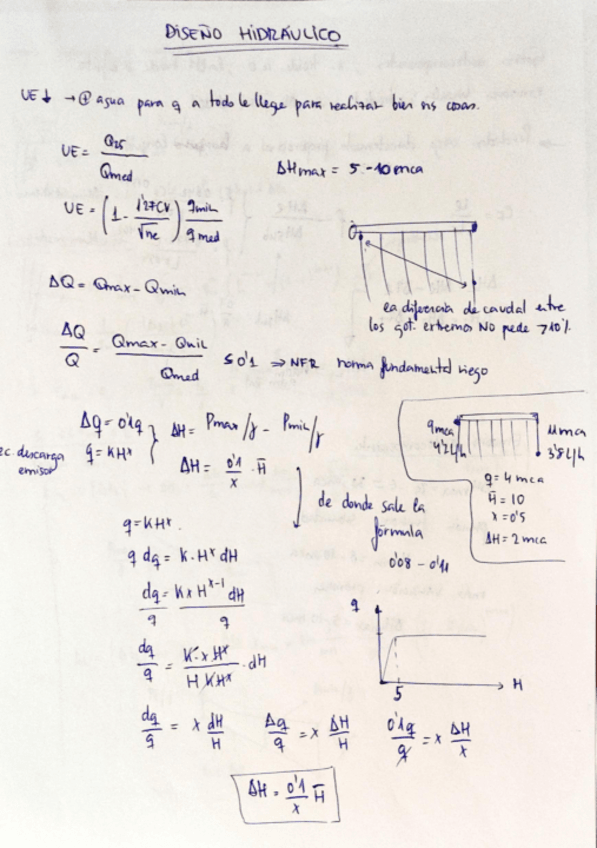 DISEÑO HIDRÁULICO
UE↓ → ⊕ agua para q a todo le llege para realizar bien sus cosas.
UE = Q25 / Qmed
ΔHmax = 5-10 mca
UE = (1 - 1'27CV / √ne) qmin / qmed
ΔQ = Qmax - Qmin
la diferencia de caudal entre
los got. extremos NO puede >10%
ΔQ / Q = Qmax - Qmin / Qmed ≤ 0'1 ⇒ NFR norma fundamental riego
Δq = 0'1q
q = KHˣ
ec. descarga
emisor
ΔH = Pmax/γ - Pmin/γ
ΔH = 0'1 / x · H̄
9mca
4'2 L/h
11mca
3'5 L/h
q = 4 mca
H̄ = 10
x = 0'5
ΔH = 2 mca
de donde sale la
fórmula
0'08 - 0'11
q = KHˣ
q dq = K·Hˣ dH
dq / q = K x Hˣ⁻¹ dH / q
dq / q = K·x Hˣ / H K Hˣ · dH
q
5
H
dq / q = x dH / H
Δq / q = x ΔH / H
0'1q / q = x ΔH / x
ΔH = 0'1 / x H̄